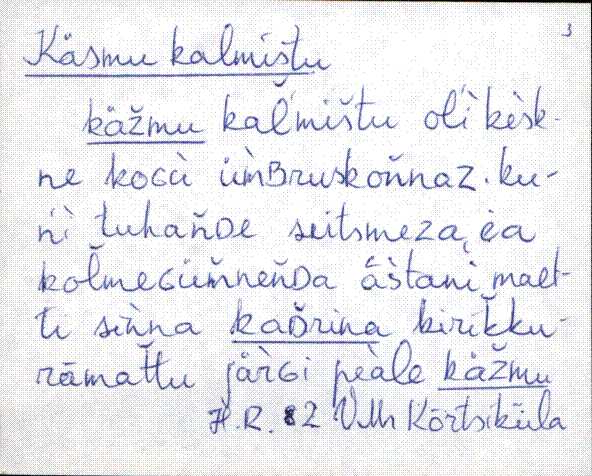 3
Käsmu kalmistu
kä̀žmu kaľmištu olì kèsk-
ne koGù ǜmBruskoňnaz. ku-
ńì tuhaňDe seitsmeza, èa
koľmeGümneňDa āštani maet-
ti siǹna kaDrina kirikku-
rāmattu jä̀rGi peàle kä̀žmu
H.R. 82 VMr Kõrtsiküla